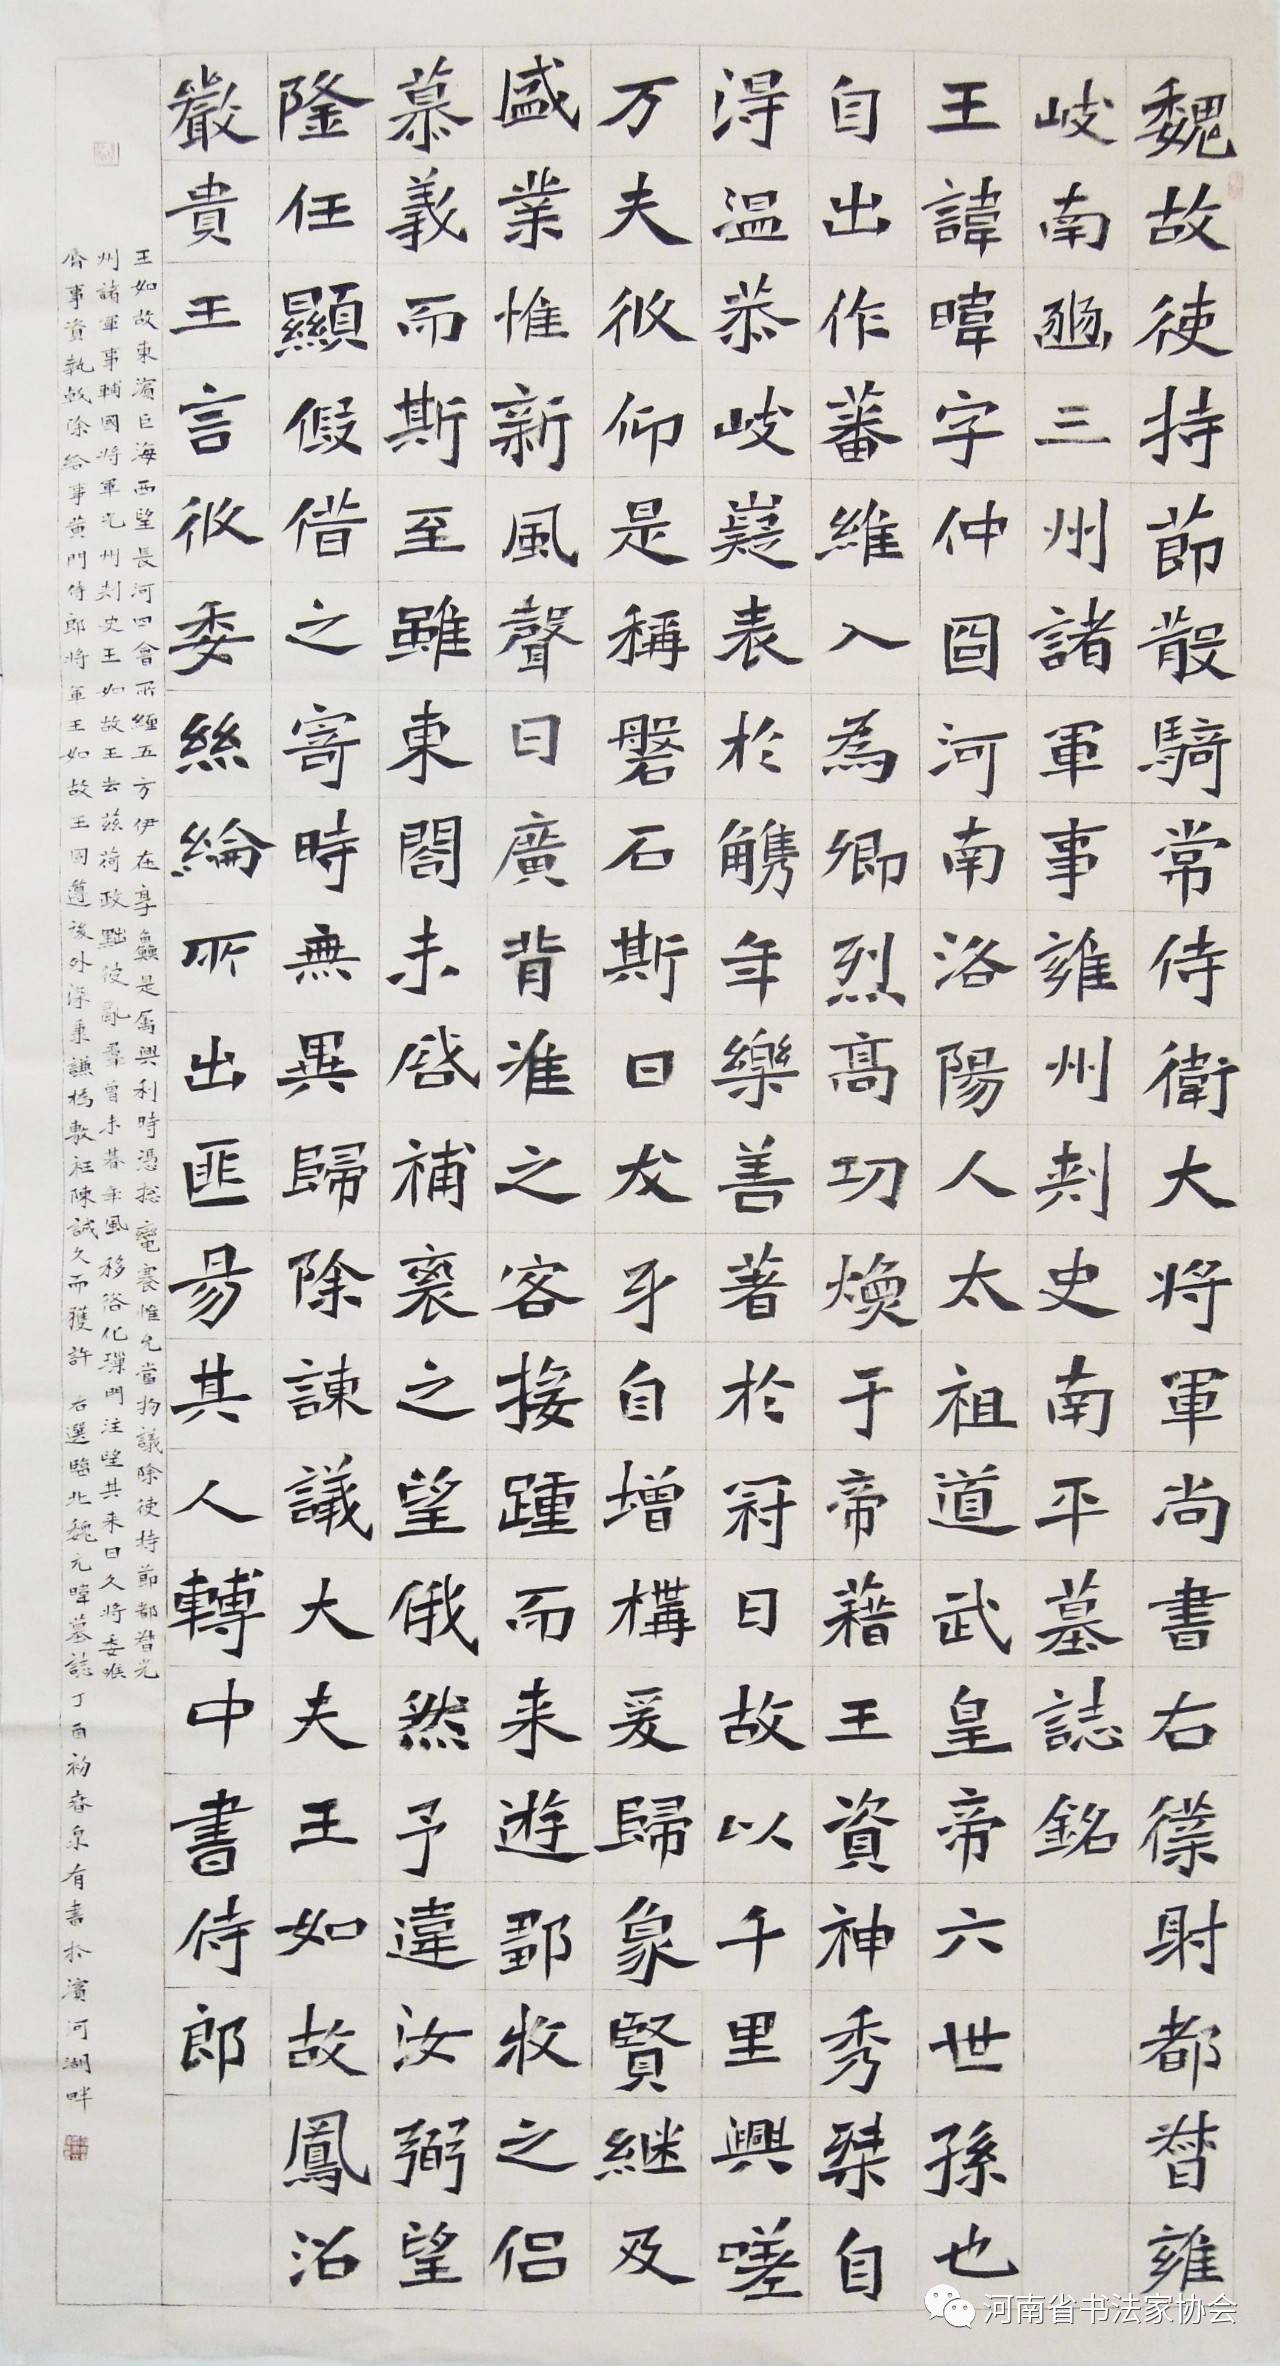 魏故使持節散騎常侍衛大將軍尚書右僕射都督雍
岐南豳三州諸軍事雍州刺史南平墓誌銘
王諱暐字仲冏河南洛陽人太祖道武皇帝六世孫也
自出作蕃維入為卿烈高功煥于帝藉王資神秀桀自
得温恭岐嶷表於觹年樂善著於冠日故以千里興嗟
万夫攸仰是稱磐石斯曰犬牙自增構爰歸象賢継及
盛業惟新風聲日廣背淮之客接踵而来遊鄴收之侣
慕義而斯至雖東閤未啓補衮之望俄然予違汝弼望
隆任顯假借之寄時無異歸除諫議大夫王如故鳳沼
嚴貴王言攸委絲綸所出匪易其人轉中書侍郎
王如故東濱巨海西望長河四會所纏五方伊在享鱻是屬興利時憑惣電褰惟允當拘議除使持節都督光
州諸軍事輔國將軍光州刺史王如故王去茲苛政黜彼亂羣曾未朞年風移俗化璅門注望其来日久將委喉
脣事資執戟除給事黄門侍郎將軍王如故王固遵後外深秉謙撝敷衽陳誠久而獲許 右選臨北魏元暐墓誌丁酉初春泉有書於濱河湖畔
河南省书法家协会